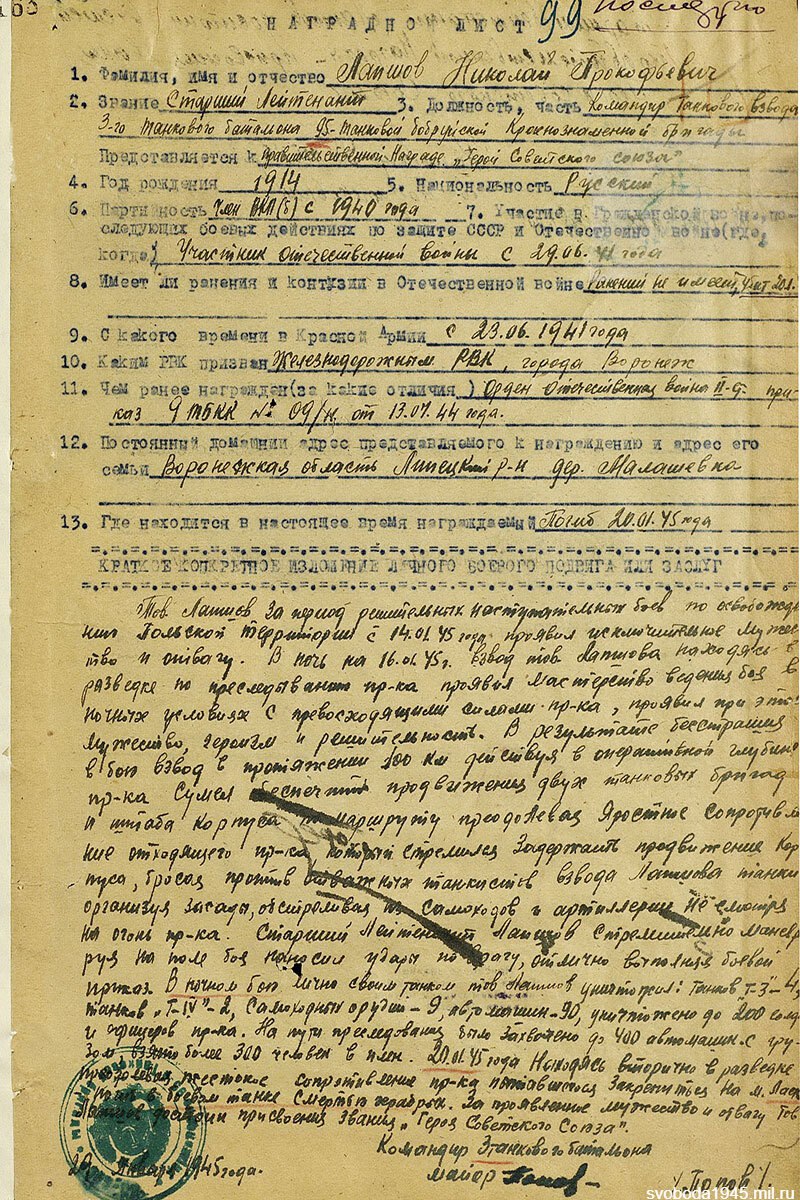 163
НАГРАДНОЙ ЛИСТ 99 посмертно
1. Фамилия, имя и отчество Лапшов Николай Прокофьевич
2. Звание Старший Лейтенант 3. Должность, часть Командир Танкового взвода
3-го танкового батальона 95-танковой бобруйской Краснознаменной бригады
Представляется к правительственной Награде „Герой Советского союза"
4. Год рождения 1914 5. Национальность Русский
6. Партийность Член ВКП(б) с 1940 года 7. Участие в Гражданской войне, по-
следующих боевых действиях по защите СССР и Отечественной войне (где,
когда) Участник отечественной войны с 29.06.41 года
8. Имеет ли ранения и контузии в Отечественной войне Ранений не имеет,
9. С какого времени в Красной Армии с 23.06.1941 года
10. Каким РВК призван Железнодорожным РВК, города Воронеж
11. Чем ранее награжден (за какие отличия) Орден Отечественная война II-й ст. при-
каз 9 ТБКК № 09/н от 13.07.44 года.
12. Постоянный домашний адрес представляемого к награждению и адрес его
семьи Воронежская область Липецкий р-н дер. Малашевка
13. Где находится в настоящее время награждаемый Погиб 20.01.45 года
КРАТКОЕ КОНКРЕТНОЕ ИЗЛОЖЕНИЕ ЛИЧНОГО БОЕВОГО ПОДВИГА ИЛИ ЗАСЛУГ
Тов Лапшов за период решительных наступательных боев по освобожде
нию Польской территории с 14.01.45 года проявил исключительное Мужес
тво и отвагу. В ночь на 16.01.45г. взвод тов Лапшова находясь в
разведке по преследыванию пр-ка проявил мастерство ведения боя в
ночных условиях с превосходящими силами пр-ка, проявил при этом
Мужество, героизм и решительность. В результате бесстрашия
в бою взвод в протяжении 100 км действуя в оперативной глубине
пр-ка Сумел беспечить продвижения двух танковых бригад
и штаба корпуса маршруту преодолевая Яростное сопротивле
ние отходящего пр-ка, который стремился задержать продвижение Кор
пуса, бросая против отважных танкистов взвода Лапшова танки
организуя засады, обстроливая из самоходов и артиллерии Не смотря
на огонь пр-ка. Старший Лейтенант Лапшов Стремительно маневри
руя на поле боя наносил удары по врагу, отлично выполняя боевой
приказ. В ночном бою лично своим танком тов Лапшов уничтожил: Танков Т-3 - 4,
танков „Т-IV"-2, Самоходных орудий - 9, автомашин - 90, уничтожено до 200 солд
и офицеров пр-ка. На пути преследования было захвачено до 400 автомашин с гру-
зом взято более 300 человек в плен. 20.01.45 года Находясь вторично в разведке
преодолевая жестокое сопротивление пр-ка пытавшегося Закрепиться на м.
в боевом танке Смертью храбрых. За проявленные мужество и отвагу тов
Лапшов достоин присвоения Звания „Героя Советского Союза".
Командир 3 танкового батальона
майор /Попов/.
Января 1945 года.
svoboda1945.mil.ru